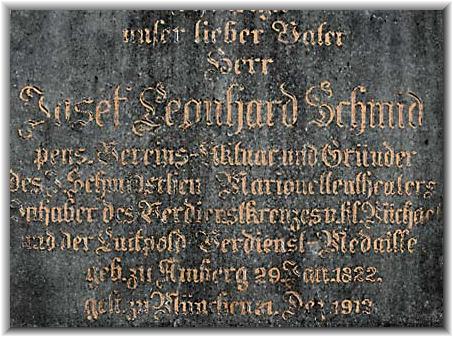 unser lieber Vater
Herr
Josef Leonhard Schmid
pens. Vereins-Aktuar und Gründer
des J. Schmid'schen Marionettentheaters
Inhaber des Verdienstkreuzes v. hl. Michael
und der Luitpold Verdienst-Medaille
geb. zu Amberg 29. Jan. 1822.
gest. zu München 31. Dez. 1912